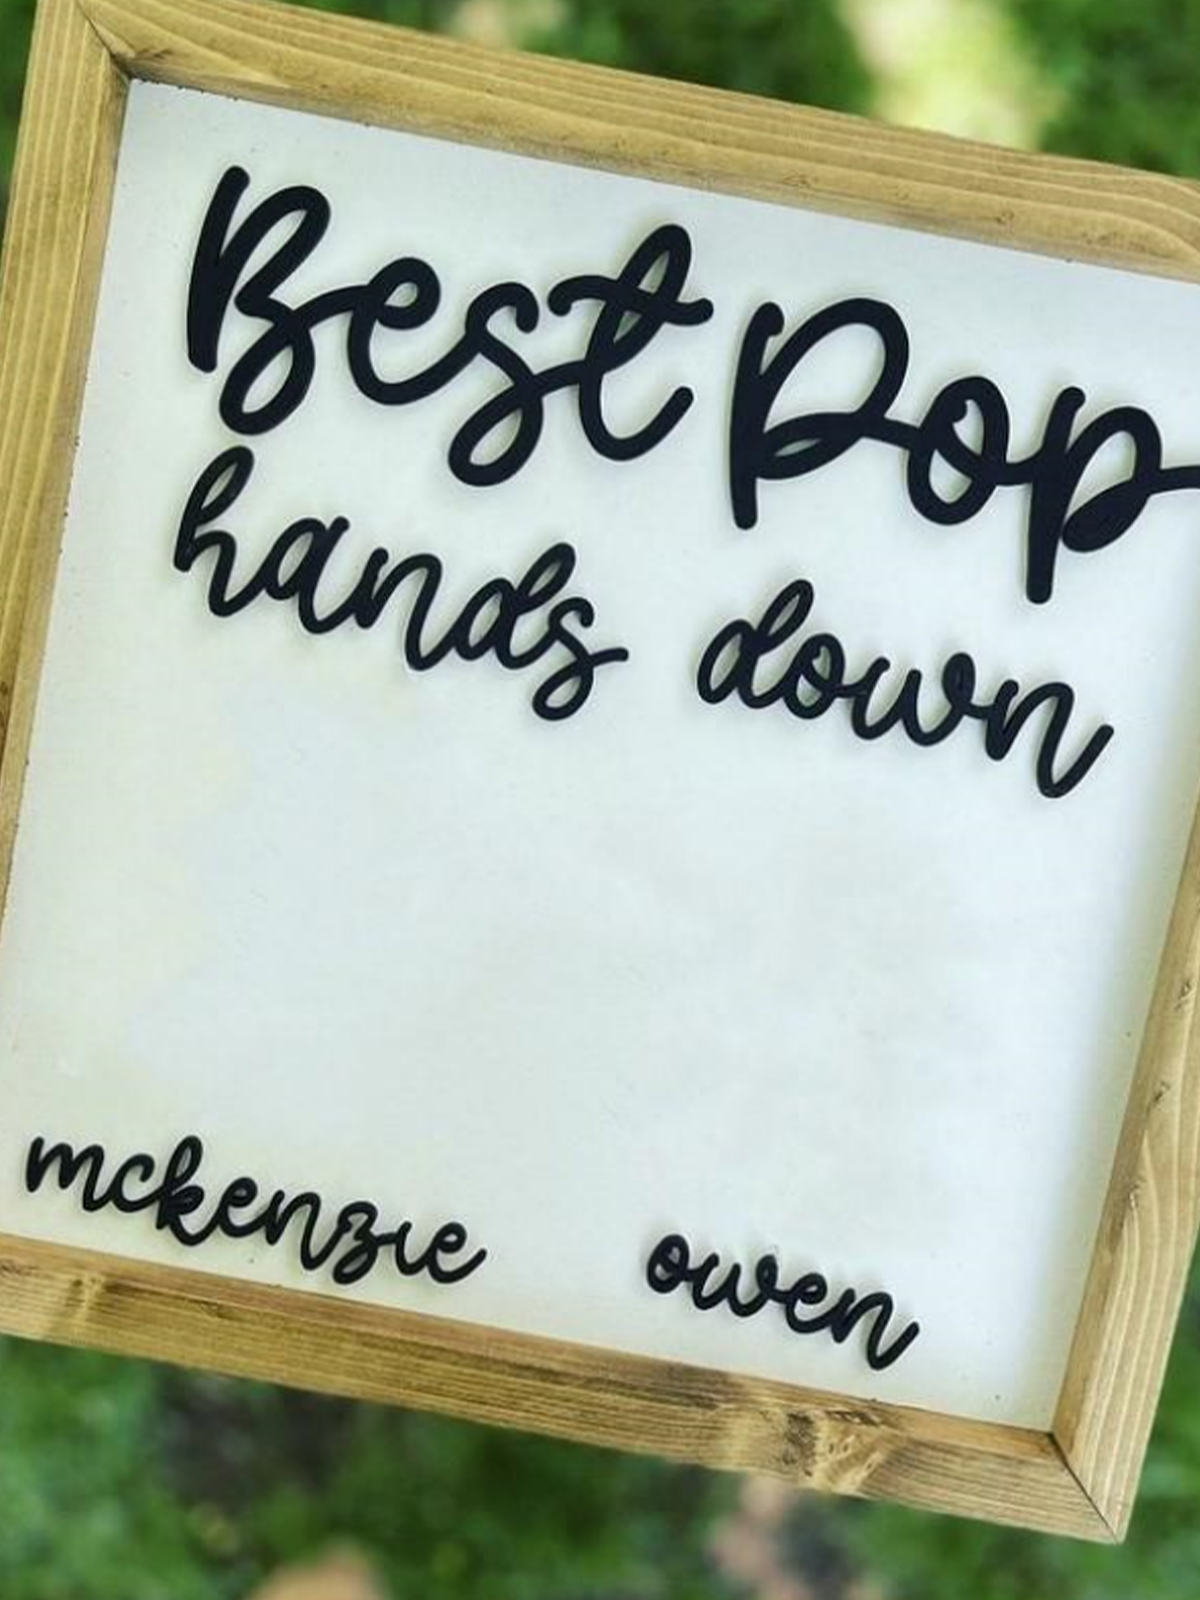 Best Pop
hands down
mckenzie owen